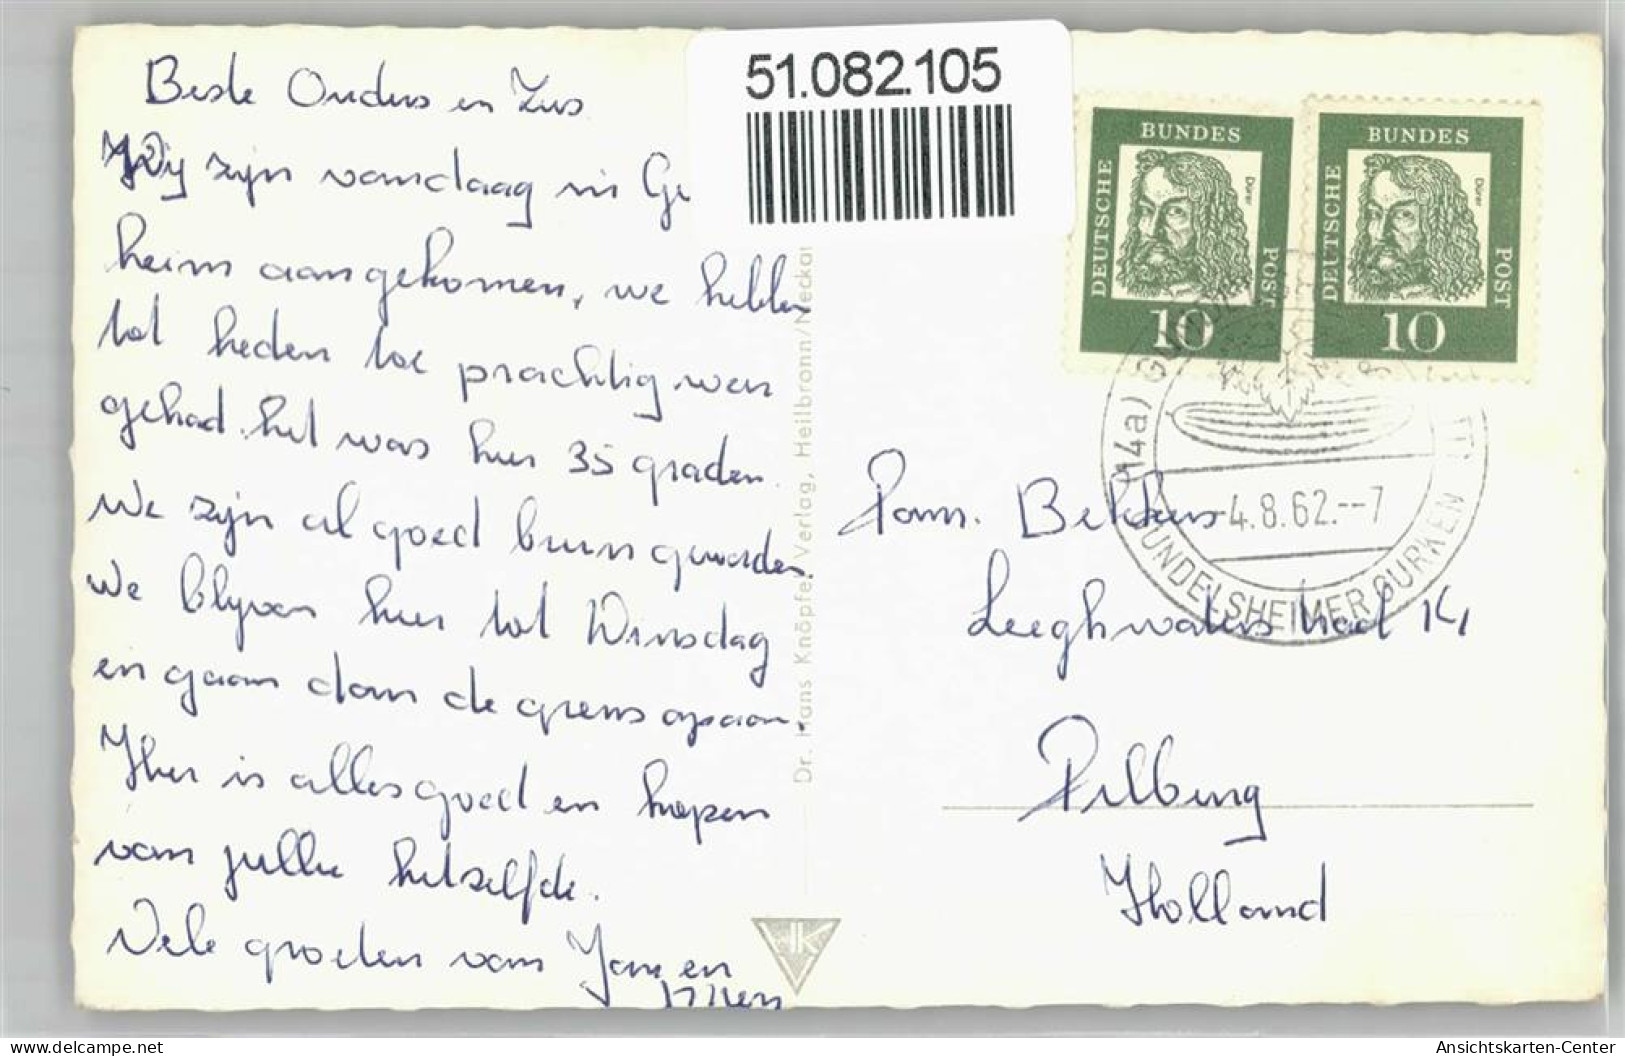 Beste Ouders en Zus
Wij zijn vandaag in Ge
heim aangekomen, we hebben
tot heden toe prachtig weer
gehad. het was hier 35 graden.
We zijn al goed bruin geworden.
We blijven hier tot Dinsdag
en gaan dan de grens op aan.
Hier is alles goed en hopen
van jullie hetzelfde.
Vele groeten van Jan en
51.082.105
Dr. Hans Knöpfel Verlag, Heilbronn/Neckar
HK
BUNDES
DEUTSCHE
POST
Dürer
10
BUNDES
DEUTSCHE
POST
Dürer
10
(14a)
-4.8.62.--7
GUNDELSHEIMER GURKEN
Fam. Bekkers
Leeghwaterstraat 14
Tilburg
Holland
www.delcampe.net
Ansichtskarten-Center